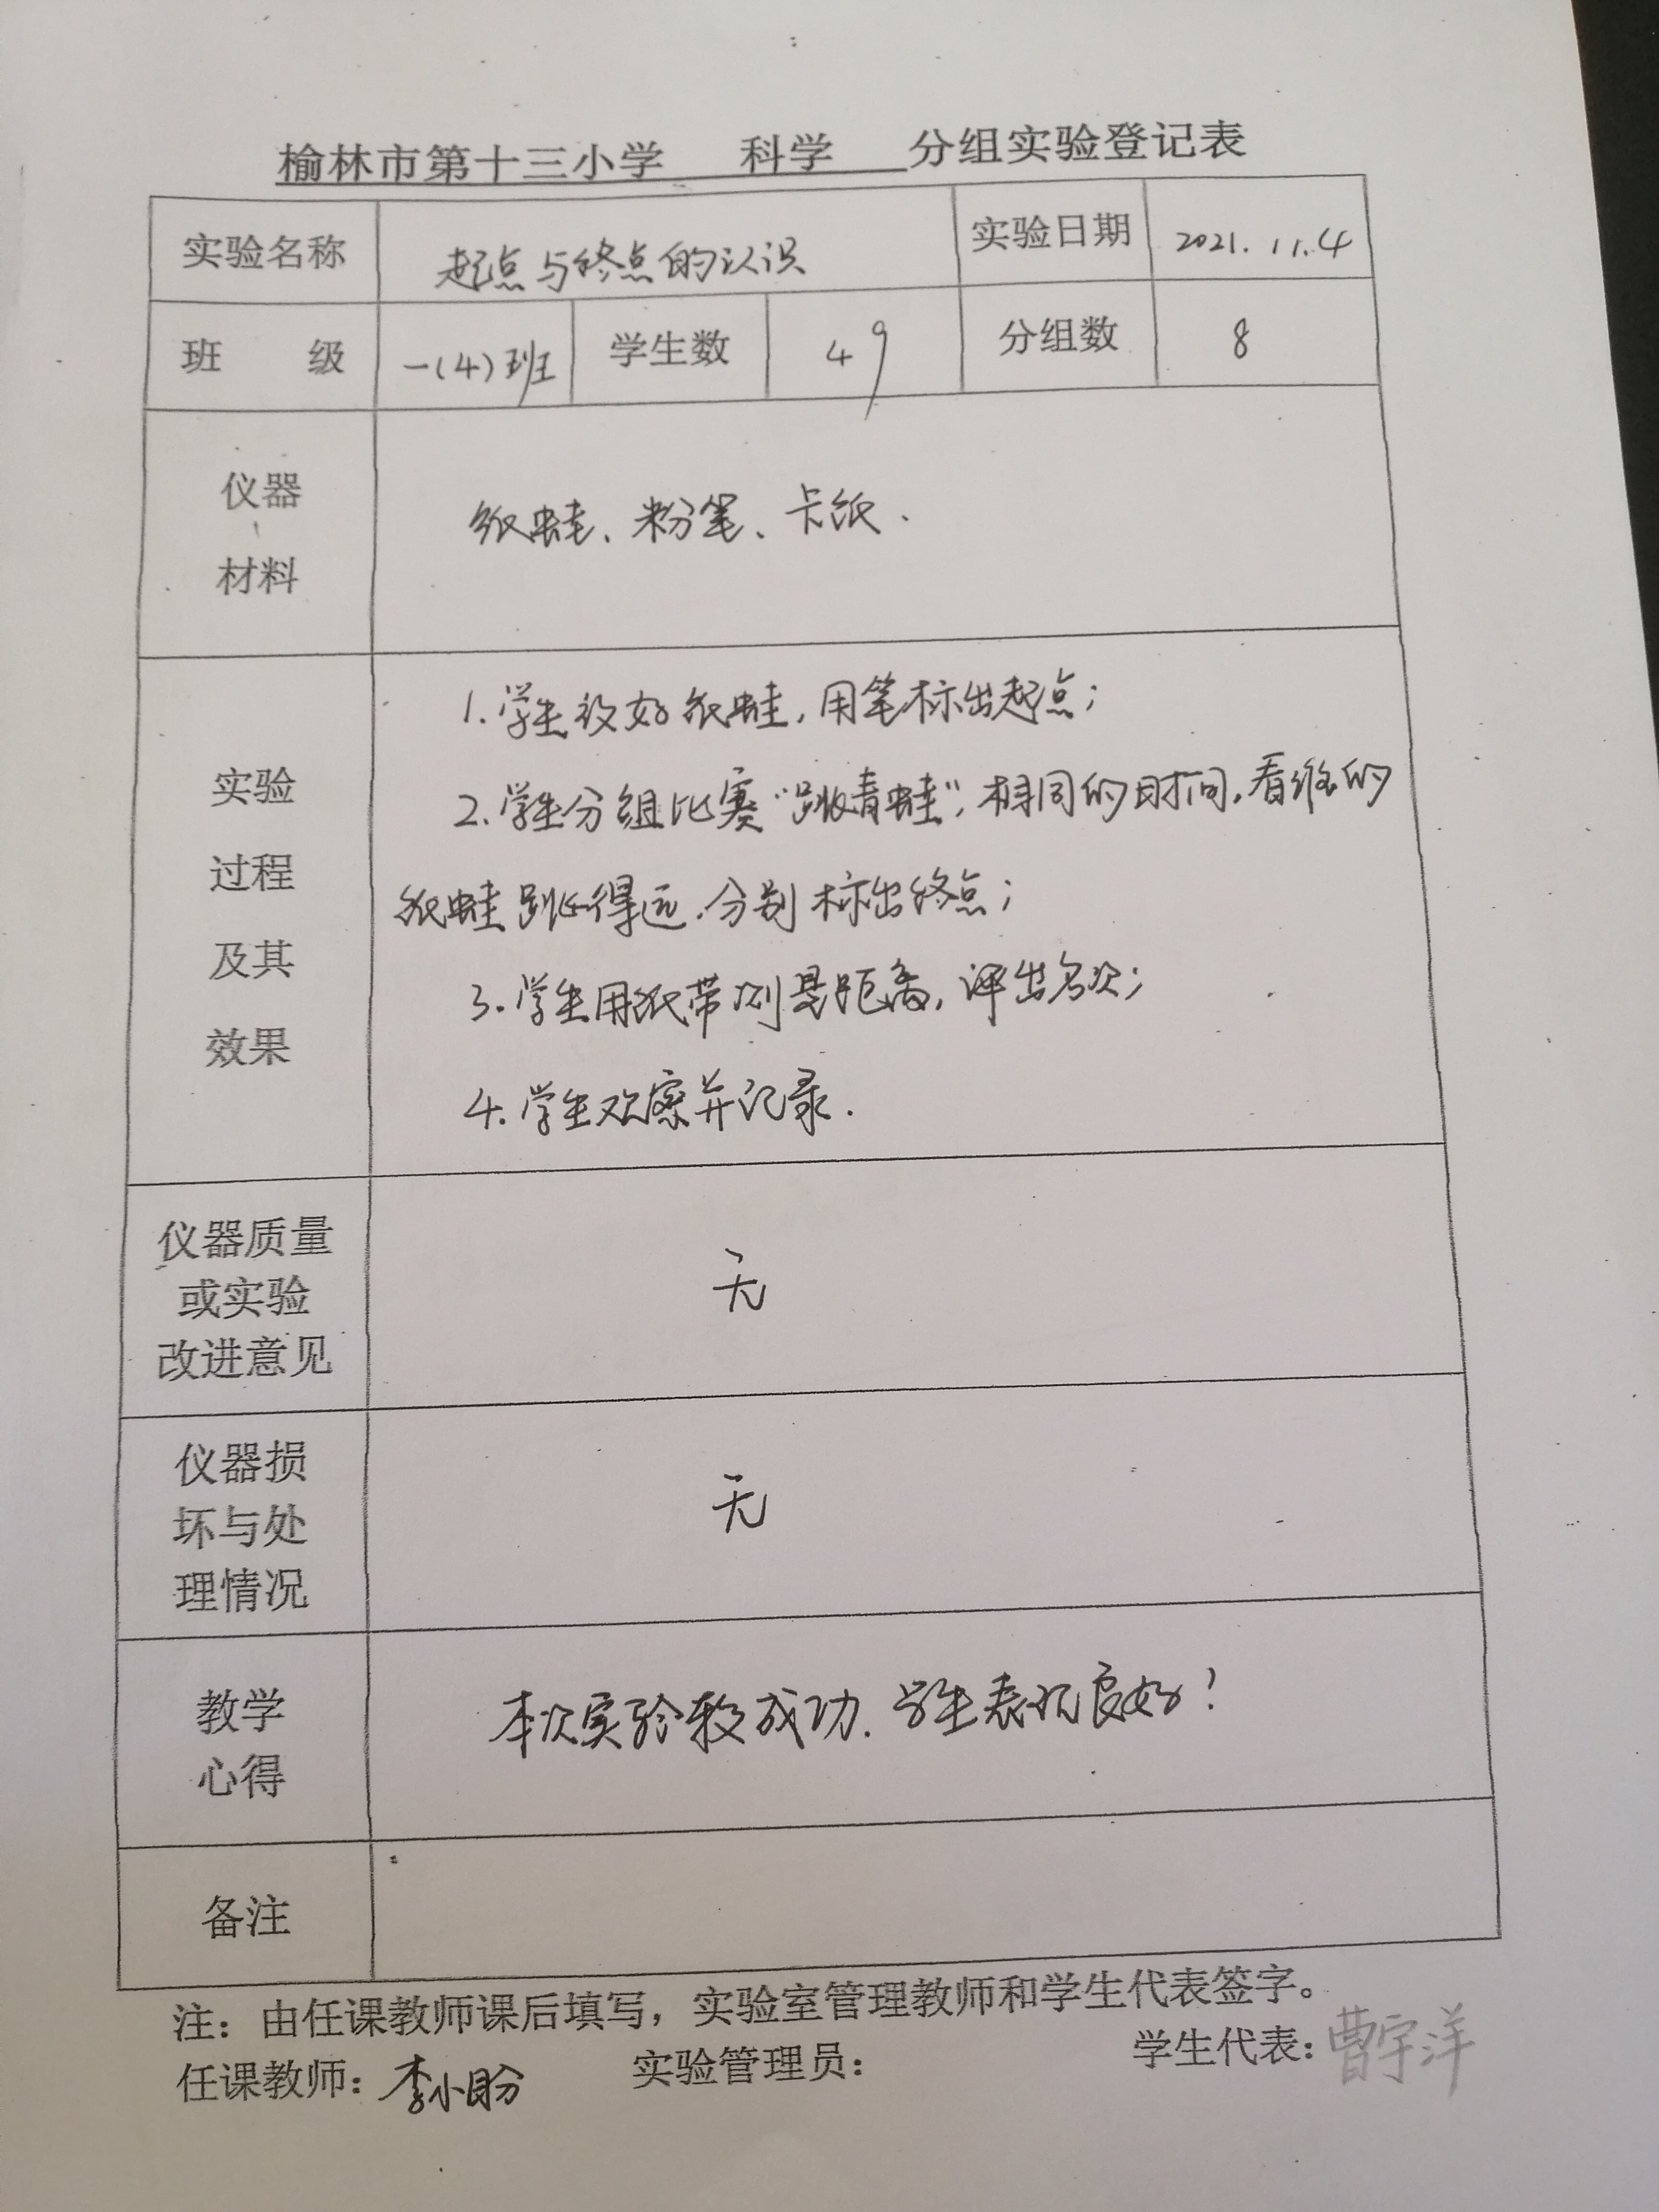 榆林市第十三小学 科学 分组实验登记表
实验名称 起点与终点的认识 实验日期 2021.11.4
班 级 一(4)班 学生数 49 分组数 8
仪器
材料
纸蛙、粉笔、卡纸.
实验
过程
及其
效果
1.学生设好纸蛙,用笔标出起点;
2.学生分组比赛“跳青蛙”,相同的时间,看谁的
纸蛙跳得远.分别标出终点;
3.学生用纸带测量距离,评出名次;
4.学生观察并记录.
仪器质量
或实验
改进意见
无
仪器损
坏与处
理情况
无
教学
心得
本次实验较成功.学生表现良好!
备注
注：由任课教师课后填写，实验室管理教师和学生代表签字。
任课教师：李小盼 实验管理员： 学生代表：曹宇洋